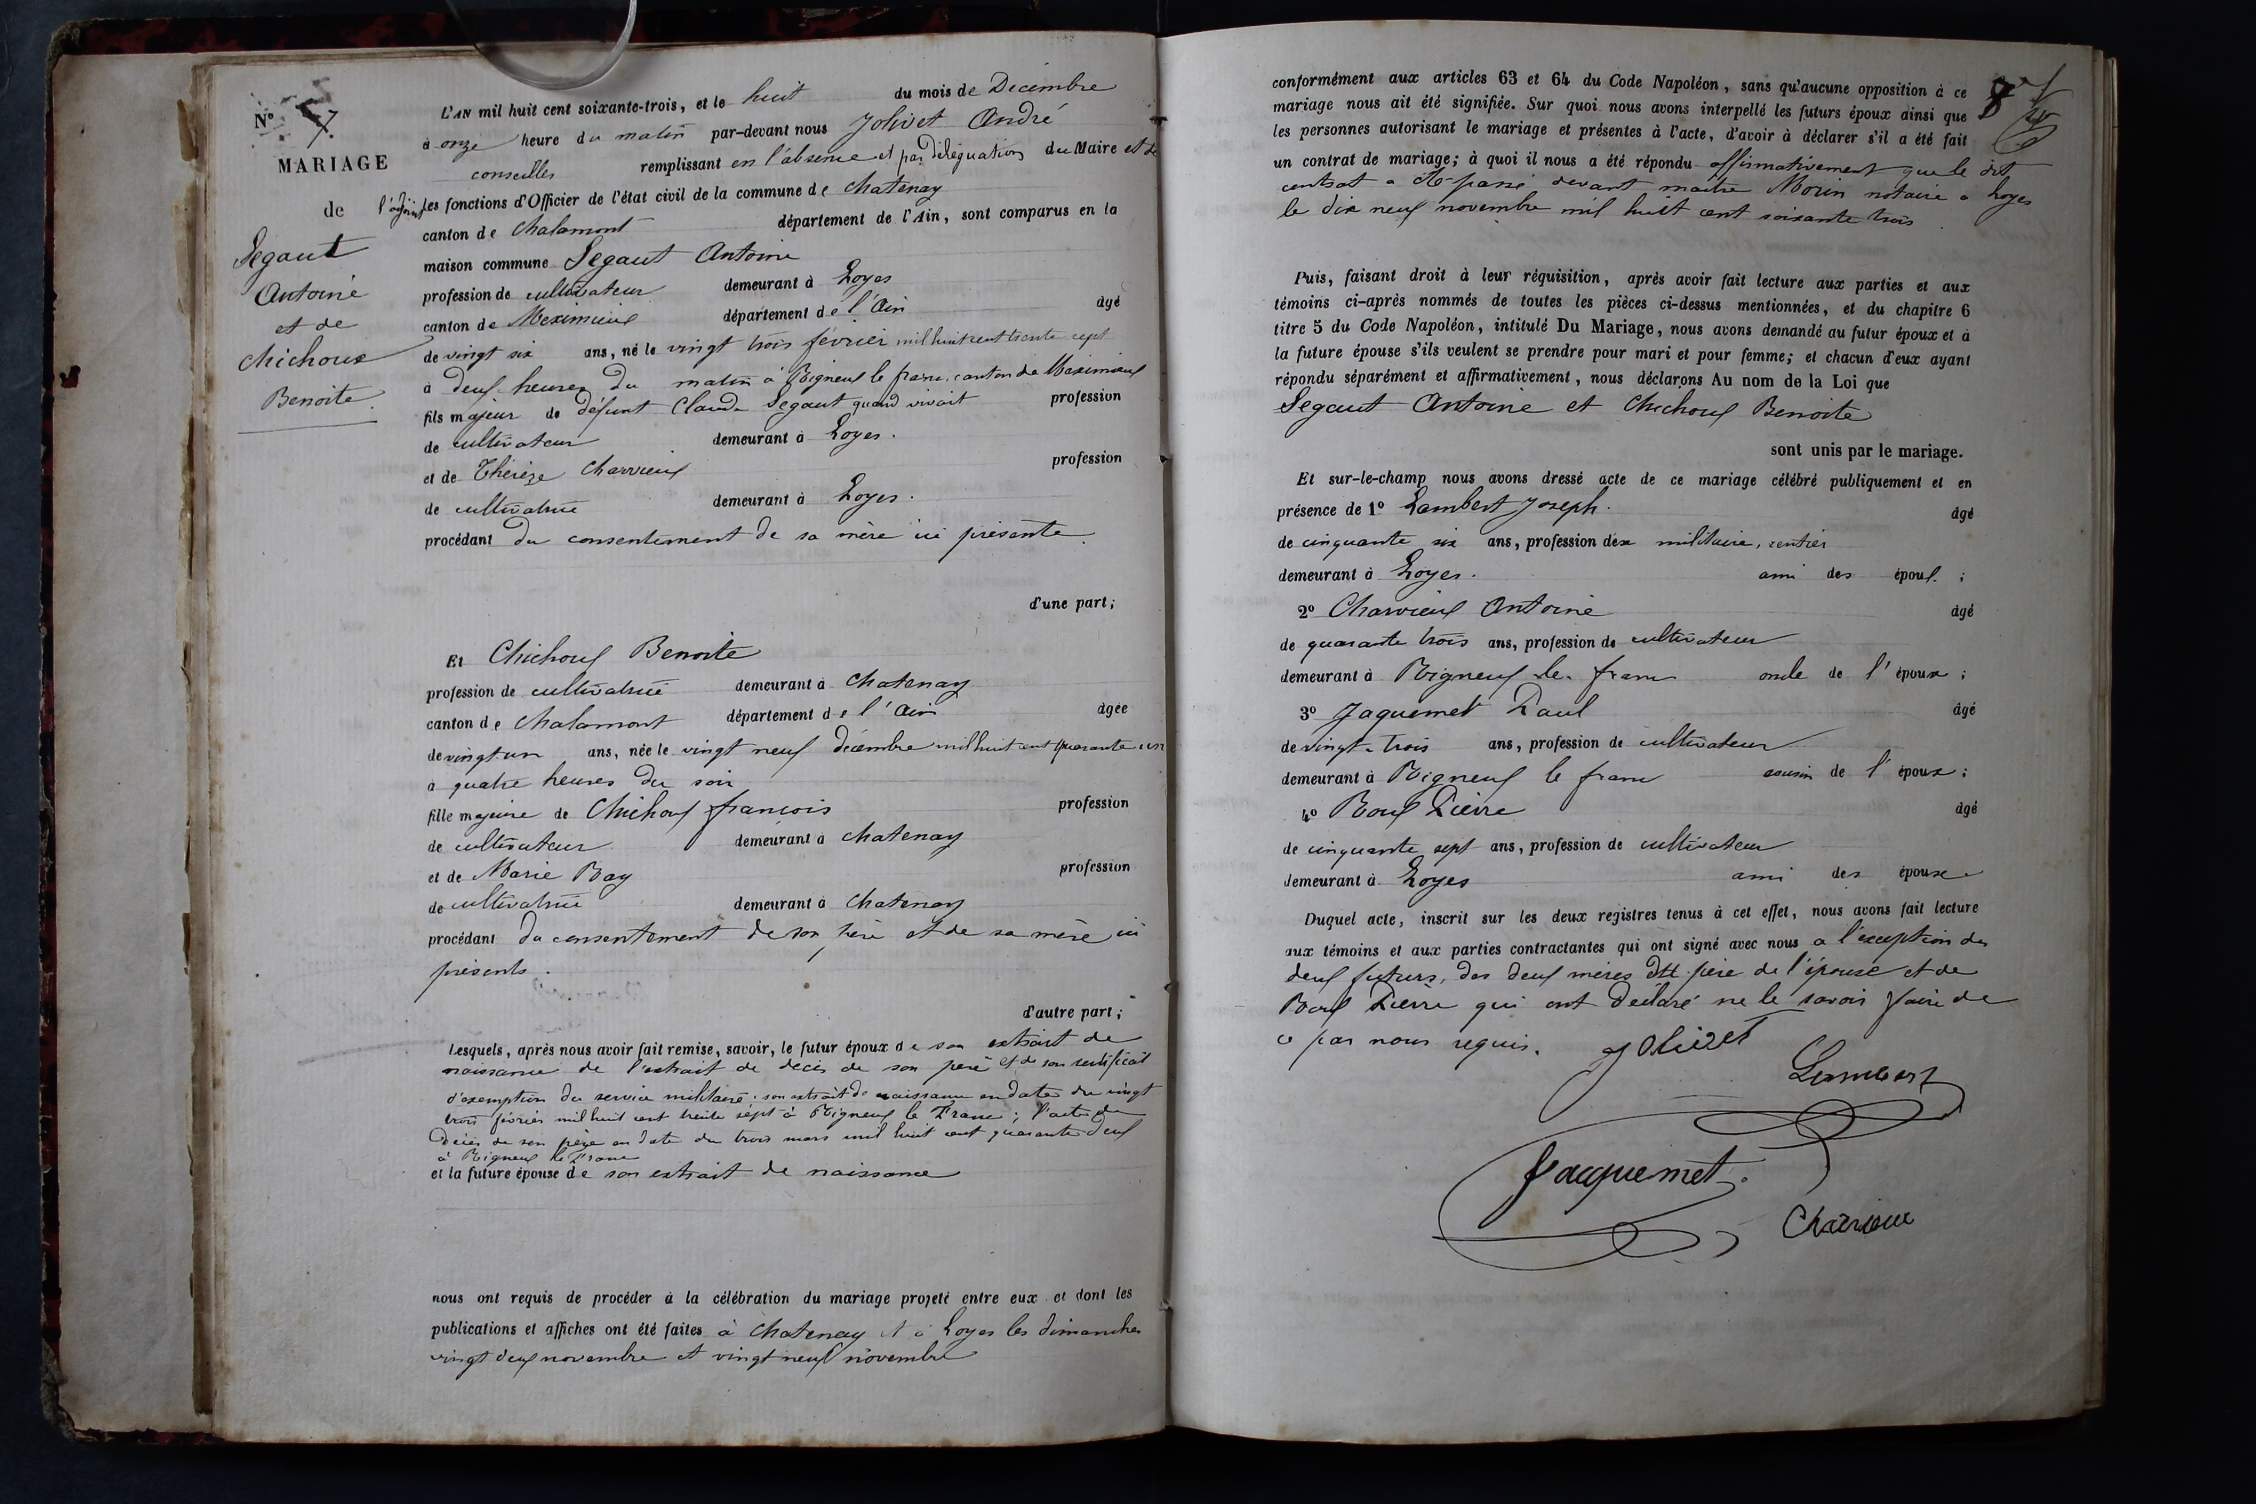 N° 7.
MARIAGE
de
Segaut
Antoine
et de
Chichoux
Benoite
L'AN mil huit cent soixante-trois, et le huit du mois de Décembre
à onze heure du matin par-devant nous Jolivet André
conseiller remplissant en l'absence et par déléguation du Maire et de
l'adjoint les fonctions d'Officier de l'état civil de la commune de Chatenay
canton de Chalamont département de l'Ain, sont comparus en la
maison commune Segaut Antoine
profession de cultivateur demeurant à Loyes
canton de Meximieux département de l'Ain âgé
de vingt six ans, né le vingt trois février mil huit cent trente sept
à deux heures du matin à Rigneux le franc, canton de Meximieux
fils majeur de défunt Claude Segaut quand vivait profession
de cultivateur demeurant à Loyes.
et de Thérèze Charvieux profession
de cultivatrice demeurant à Loyes.
procédant du consentement de sa mère ici présente.
d'une part;
Et Chichoux Benoite
profession de cultivatrice demeurant à Chatenay
canton de Chalamont département de l'Ain âgée
de vingt un ans, née le vingt neuf décembre mil huit cent quarante un
à quatre heures du soir
fille majeure de Chichoux françois profession
de cultivateur demeurant à Chatenay
et de Marie Ray profession
de cultivatrice demeurant à Chatenay
procédant du consentement de son père et de sa mère ici
présents.
d'autre part;
Lesquels, après nous avoir fait remise, savoir, le futur époux de son extrait de
naissance de l'extrait de décès de son père et de son certificat
d'exemption du service militaire. son extrait de naissance en date du vingt
trois février mil huit cent trente sept à Rigneux le Franc; l'acte de
décès de son père en date du trois mars mil huit cent quarante deux
à Rigneux le Franc
et la future épouse de son extrait de naissance
nous ont requis de procéder à la célébration du mariage projeté entre eux et dont les
publications et affiches ont été faites à Chatenay et à Loyes les dimanches
vingt deux novembre et vingt neuf novembre
8
conformément aux articles 63 et 64 du Code Napoléon, sans qu'aucune opposition à ce
mariage nous ait été signifiée. Sur quoi nous avons interpellé les futurs époux ainsi que
les personnes autorisant le mariage et présentes à l'acte, d'avoir à déclarer s'il a été fait
un contrat de mariage; à quoi il nous a été répondu affirmativement que le dit
contrat a été passé devant maitre Morin notaire à Loyes
le dix neuf novembre mil huit cent soixante trois
Puis, faisant droit à leur réquisition, après avoir fait lecture aux parties et aux
témoins ci-après nommés de toutes les pièces ci-dessus mentionnées, et du chapitre 6
titre 5 du Code Napoléon, intitulé Du Mariage, nous avons demandé au futur époux et à
la future épouse s'ils veulent se prendre pour mari et pour femme; et chacun d'eux ayant
répondu séparément et affirmativement, nous déclarons Au nom de la Loi que
Segaut Antoine et Chichoux Benoite
sont unis par le mariage.
Et sur-le-champ nous avons dressé acte de ce mariage célébré publiquement et en
présence de 1° Lambert Joseph. âgé
de cinquante six ans, profession d'ex militaire, rentier
demeurant à Loyes. ami des époux;
2° Charvieux Antoine âgé
de quarante trois ans, profession de cultivateur
demeurant à Rigneux le franc oncle de l'époux;
3° Jaquemet Paul âgé
de vingt-trois ans, profession de cultivateur
demeurant à Rigneux le franc cousin de l'époux;
4° Roux Pierre âgé
de cinquante sept ans, profession de cultivateur
demeurant à Loyes ami des époux
Duquel acte, inscrit sur les deux registres tenus à cet effet, nous avons fait lecture
aux témoins et aux parties contractantes qui ont signé avec nous à l'exception des
deux futurs, des deux mères père de l'épouse et de
Roux Pierre qui ont déclaré ne le savoir faire de
ce par nous requis. Jolivet
Lambert
Jacquemet.
Charvieux